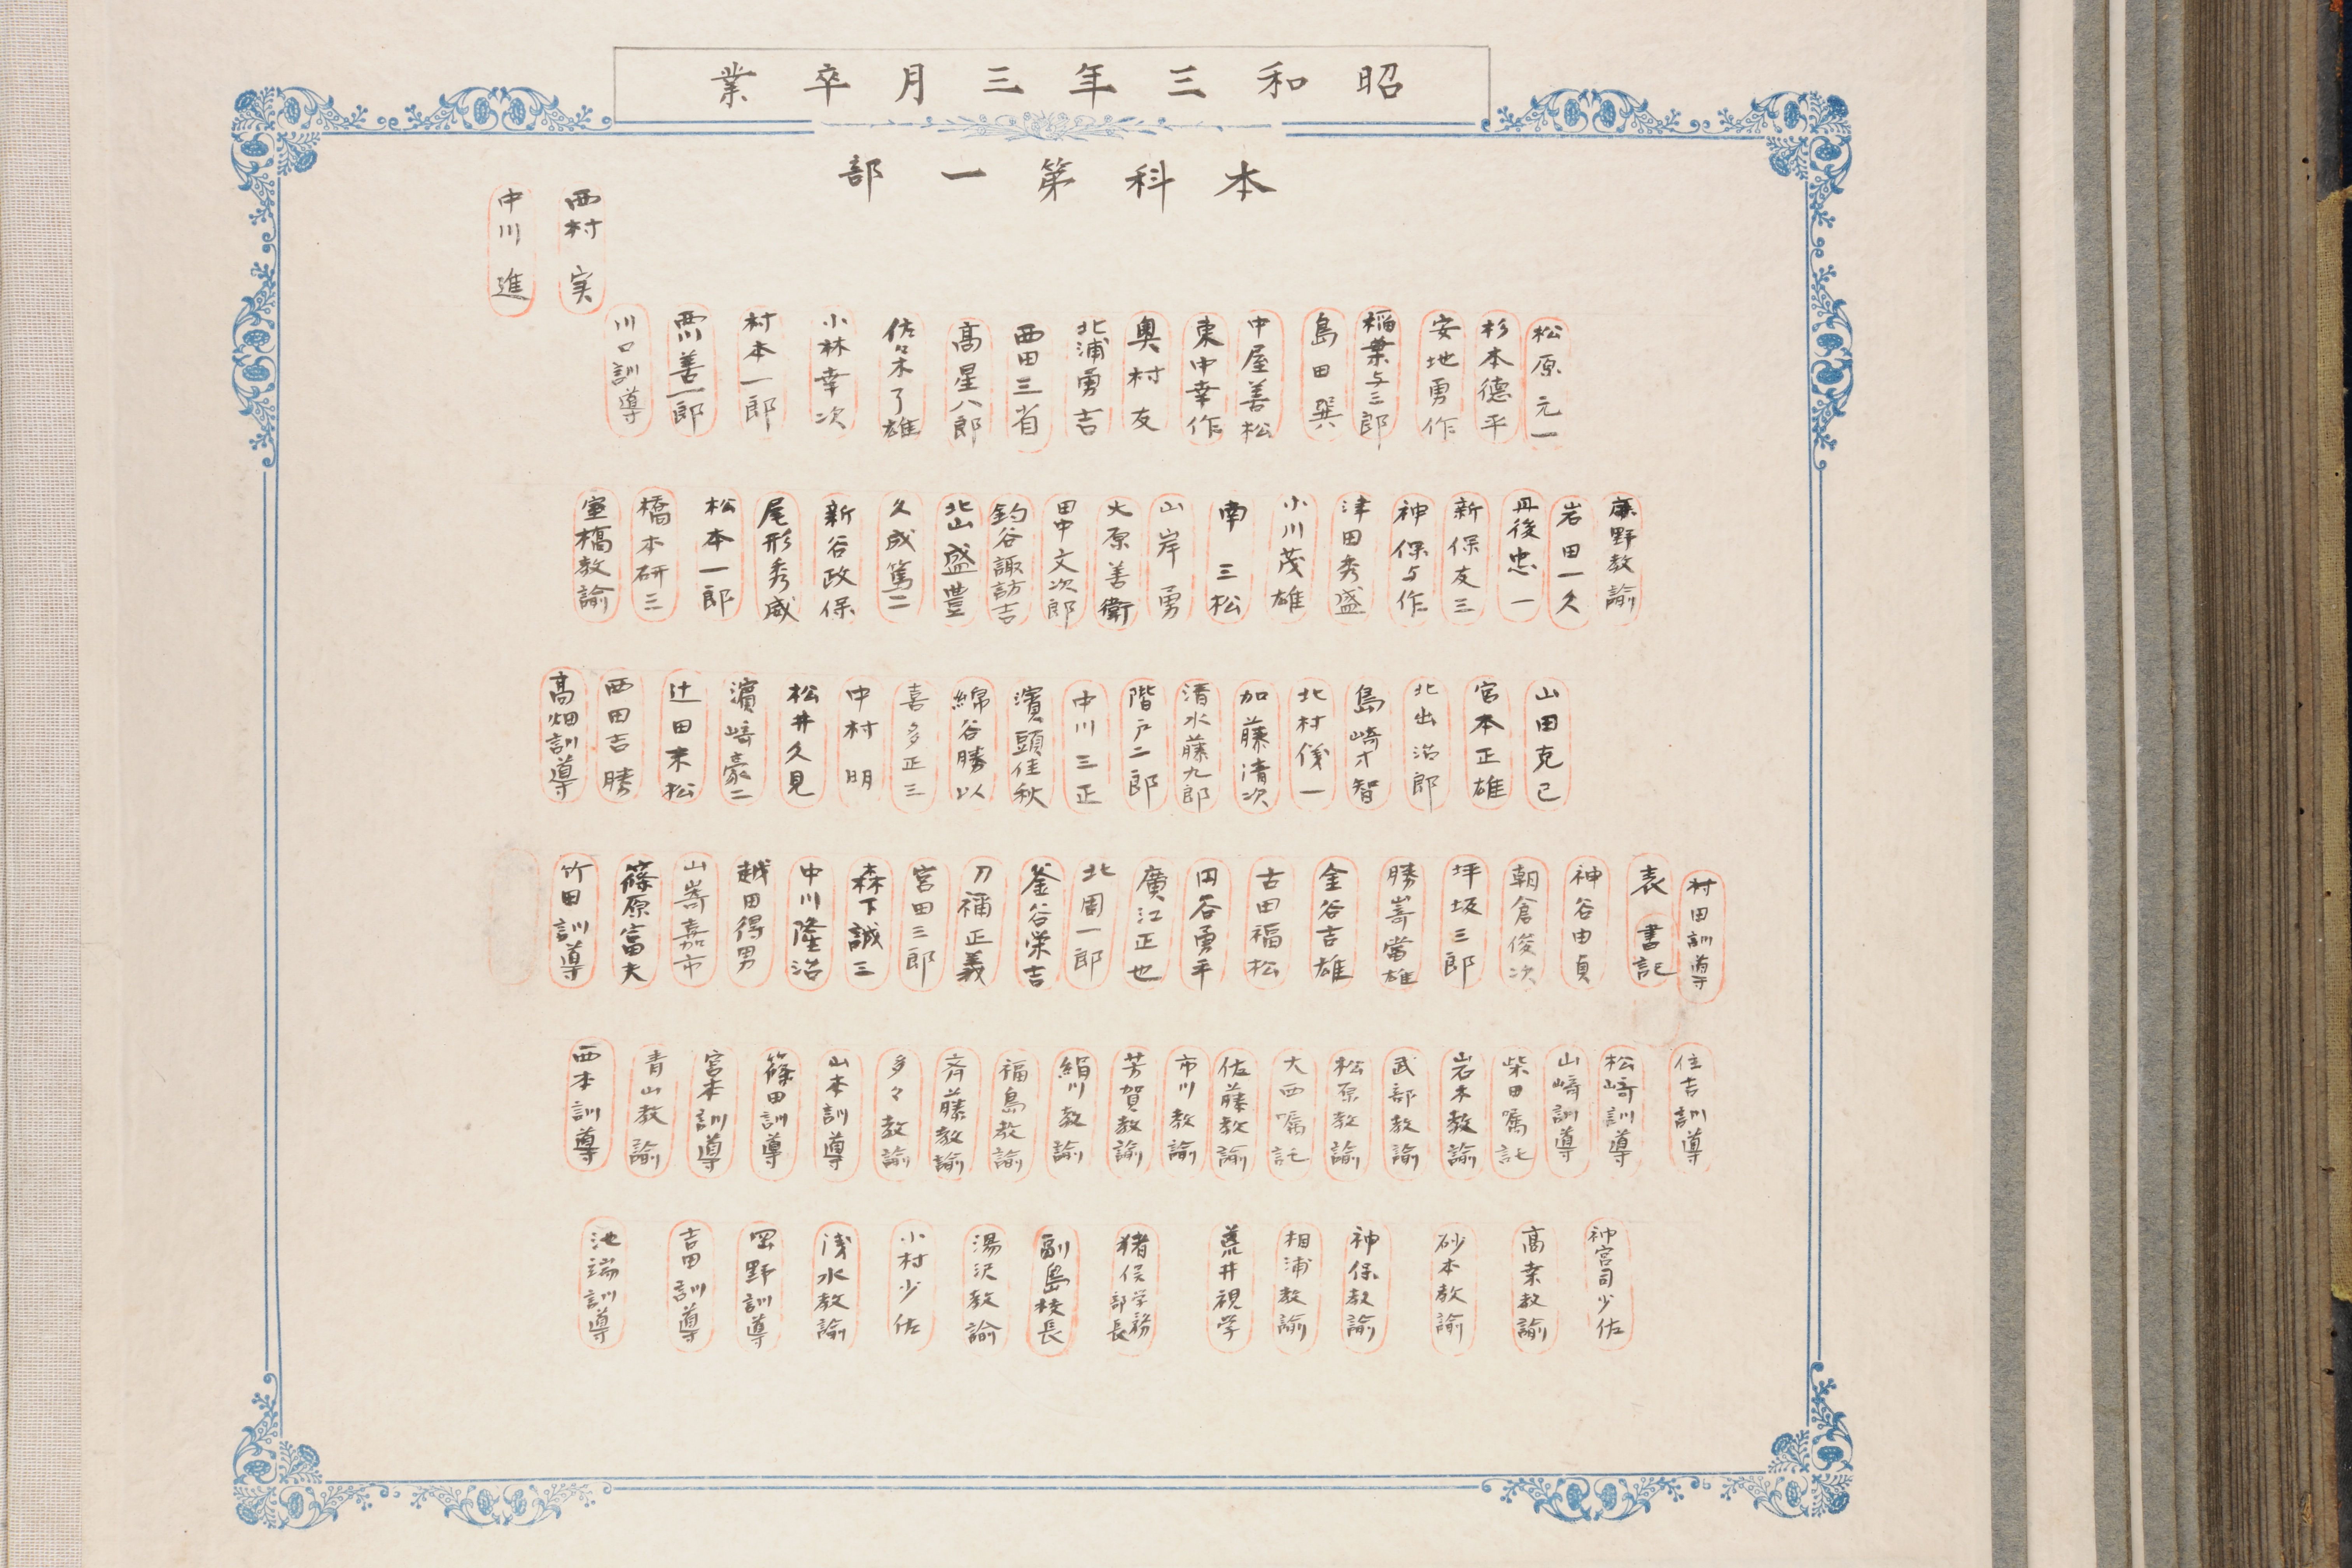 昭和三年三月卒業
本科第一部
西村実
中川進
松原元一
杉本徳平
安地勇作
稲葉与三郎
島田巽
中屋善松
東中幸作
奥村友
北浦勇吉
西田三省
高星八郎
佐々木了雄
小林幸次
村本一郎
西川善一郎
川口訓導
藤野教諭
岩田一久
丹後忠一
新保友三
神保与作
津田秀盛
小川茂雄
南三松
山岸勇
大原善衛
田中文次郎
釣谷諏訪吉
北山盛豊
久成篤二
新谷政保
尾形秀威
松本一郎
橋本研三
室橋教諭
山田克己
宮本正雄
北出治郎
島崎才智
北村儀一
加藤清次
清水藤九郎
階戸二郎
中川三正
濱頭佳秋
綿谷勝以
喜多正三
中村明
松井久見
濵崎豪二
辻田末松
西田吉勝
高畑訓導
村田訓導
表書記
神谷由貞
朝倉俊次
坪坂三郎
勝嵜當雄
金谷吉雄
古田福松
円谷勇平
廣江正也
北圊一郎
釜谷栄吉
刀祢正義
宮田三郎
森下誠三
中川隆治
越田得男
山嵜嘉市
篠原富夫
竹田訓導
住吉訓導
松崎訓導
山崎訓導
柴田嘱託
岩木教諭
武部教諭
松原教諭
大西嘱託
佐藤教諭
市川教諭
芳賀教諭
絹川教諭
福島教諭
斉藤教諭
多々教諭
山本訓導
篠田訓導
宮本訓導
青山教諭
西本訓導
神宮司少佐
高桒教諭
砂本教諭
神保教諭
相浦教諭
荒井視学
猪俣学務部長
副島校長
湯沢教諭
小村少佐
浅水教諭
岡野訓導
吉田訓導
池端訓導